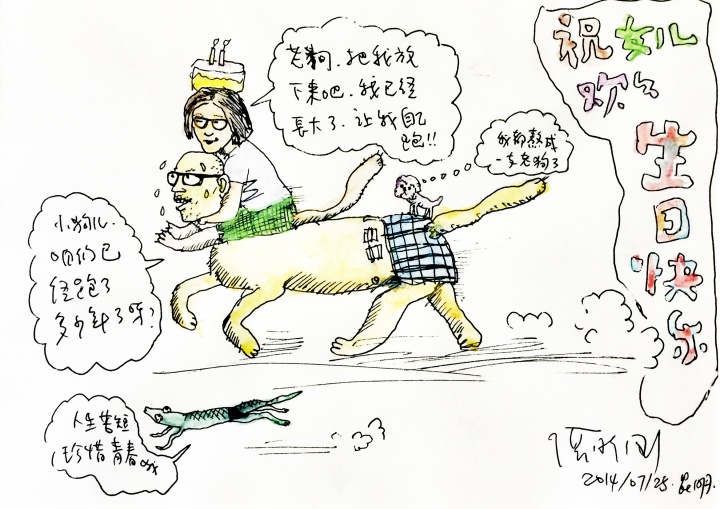 老狗、把我放
下来吧、我已经
长大了、让我自己
跑!!
我都熬成
一支老狗了
小狗儿、
咱们已
经跑了
多少斜了呀?
人生苦短
珍惜青春哦
祝女儿
欢欢
生
日
快
乐
2014/07/25.昆明.